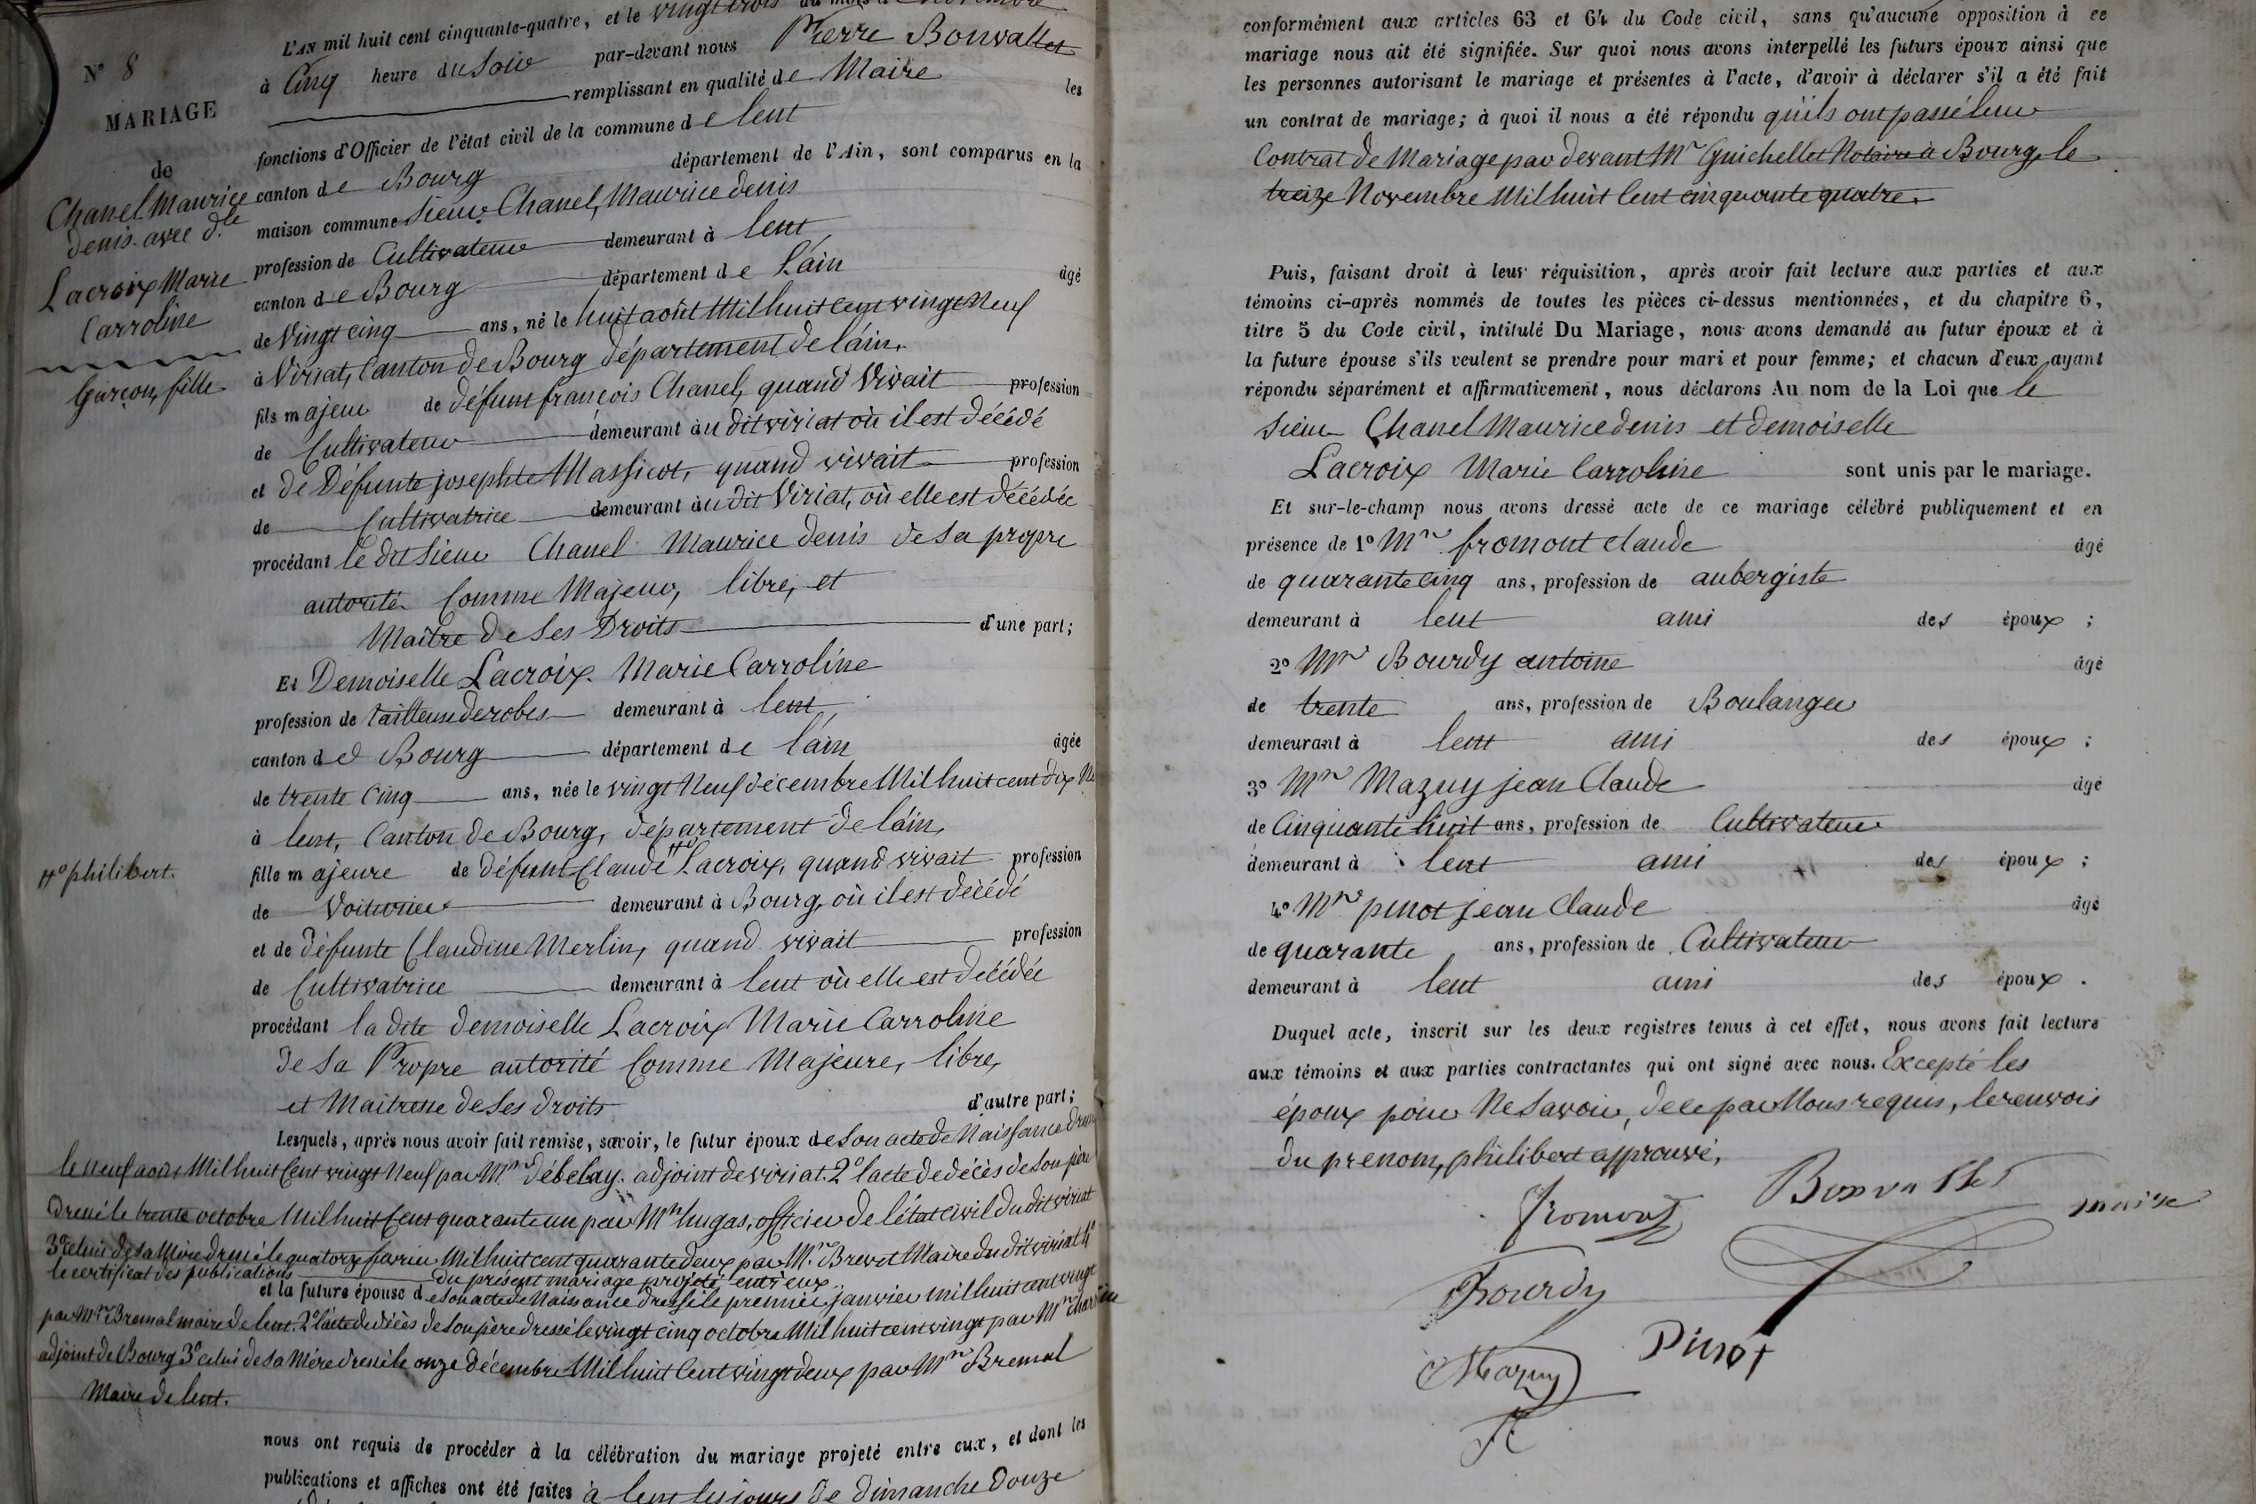 N° 8
MARIAGE
de
Chanel Maurice
denis avec dlle
Lacroix Marie
Carroline
Garçon, fille
L'AN mil huit cent cinquante-quatre, et le vingt trois du mois de Novembre
à Cinq heure du Soir par-devant nous Pierre Bonvallet
remplissant en qualité de Maire les
fonctions d'Officier de l'état civil de la commune de lent
canton de Bourg département de l'Ain, sont comparus en la
maison commune Sieur Chanel, Maurice denis
profession de Cultivateur demeurant à lent
canton de Bourg département de L'ain âgé
de Vingt cinq ans, né le huit août Mil huit cent vingt Neuf
à Viriat, Canton de Bourg département de l'ain,
fils majeur de défunt françois Chanel, quand Vivait profession
de Cultivateur demeurant au dit viriat où il est décédé
et de Défunte josephte Massicot, quand vivait profession
de Cultivatrice demeurant au dit Viriat, où elle est décédée
procédant le dit Sieur Chanel Maurice denis de sa propre
autorité Comme Majeur, libre, et
Maître de Ses Droits d'une part;
Et Demoiselle Lacroix Marie Carroline
profession de tailleuse de robes demeurant à lent
canton de Bourg département de l'ain âgée
de trente Cinq ans, née le vingt Neuf décembre Mil huit cent dix Ne
à lent, Canton de Bourg, département de l'ain,
fille majeure de défunt Claude # Lacroix, quand vivait profession
#° philibert.
de Voiturier demeurant à Bourg, où il est décédé
et de défunte Claudine Merlin, quand vivait profession
de Cultivatrice demeurant à lent où elle est décédée
procédant la dite demoiselle Lacroix Marie Carroline
de sa Propre autorité Comme Majeure, libre,
et Maitresse de Ses droits d'autre part;
Lesquels, après nous avoir fait remise, savoir, le futur époux de Son acte de Naissance dressé
le neuf août Mil huit Cent vingt Neuf par Mr débelay adjoint de viriat. 2° l'acte de décès de Son père
dressé le trente octobre Mil huit Cent quarante un par Mr hugas, officier de l'état civil du dit viriat
3° celui de Sa Mère dressé le quatorze février Mil huit cent quarante deux par Mr Brevet Maire du dit viriat 4°
le certificat des publications du présent mariage projeté entr'eux
et la future épouse de Son acte de Naissance dressé le premier janvier mil huit cent vingt
par Mr Bremal maire de lent. 2° l'acte de décès de Son père dressé le vingt cinq octobre Mil huit cent vingt par Mr
adjoint de Bourg 3° celui de Sa Mère dressé le onze décembre Mil huit Cent vingt deux par Mr Bremal
Maire de lent.
nous ont requis de procéder à la célébration du mariage projeté entre eux, et dont les
publications et affiches ont été faites à lent les jours de dimanche douze
conformément aux articles 63 et 64 du Code civil, sans qu'aucune opposition à ce
mariage nous ait été signifiée. Sur quoi nous avons interpellé les futurs époux ainsi que
les personnes autorisant le mariage et présentes à l'acte, d'avoir à déclarer s'il a été fait
un contrat de mariage; à quoi il nous a été répondu qu'ils ont passé leur
Contrat de Mariage par devant Mr Guichellet Notaire à Bourg, le
treize Novembre Mil huit Cent cinquante quatre.
Puis, faisant droit à leur réquisition, après avoir fait lecture aux parties et aux
témoins ci-après nommés de toutes les pièces ci-dessus mentionnées, et du chapitre 6,
titre 5 du Code civil, intitulé Du Mariage, nous avons demandé au futur époux et à
la future épouse s'ils veulent se prendre pour mari et pour femme; et chacun d'eux ayant
répondu séparément et affirmativement, nous déclarons Au nom de la Loi que le
Sieur Chanel Maurice denis et demoiselle
Lacroix Marie Carroline sont unis par le mariage.
Et sur-le-champ nous avons dressé acte de ce mariage célébré publiquement et en
présence de 1° Mr fromont claude âgé
de quarante cinq ans, profession de aubergiste
demeurant à lent ami des époux ;
2° Mr Bourdy antoine âgé
de trente ans, profession de Boulanger
demeurant à lent ami des époux ;
3° Mr Mazuy jean Claude âgé
de Cinquante huit ans, profession de Cultivateur
demeurant à lent ami des époux ;
4° Mr pinot jean Claude âgé
de quarante ans, profession de Cultivateur
demeurant à lent ami des époux .
Duquel acte, inscrit sur les deux registres tenus à cet effet, nous avons fait lecture
aux témoins et aux parties contractantes qui ont signé avec nous. Excepté les
époux pour Ne Savoir, de ce par Nous requis, le renvois
du prenom, philibert approuvé,
Fromont Bonvallet maire
Bourdy
Pinot
Mazuy